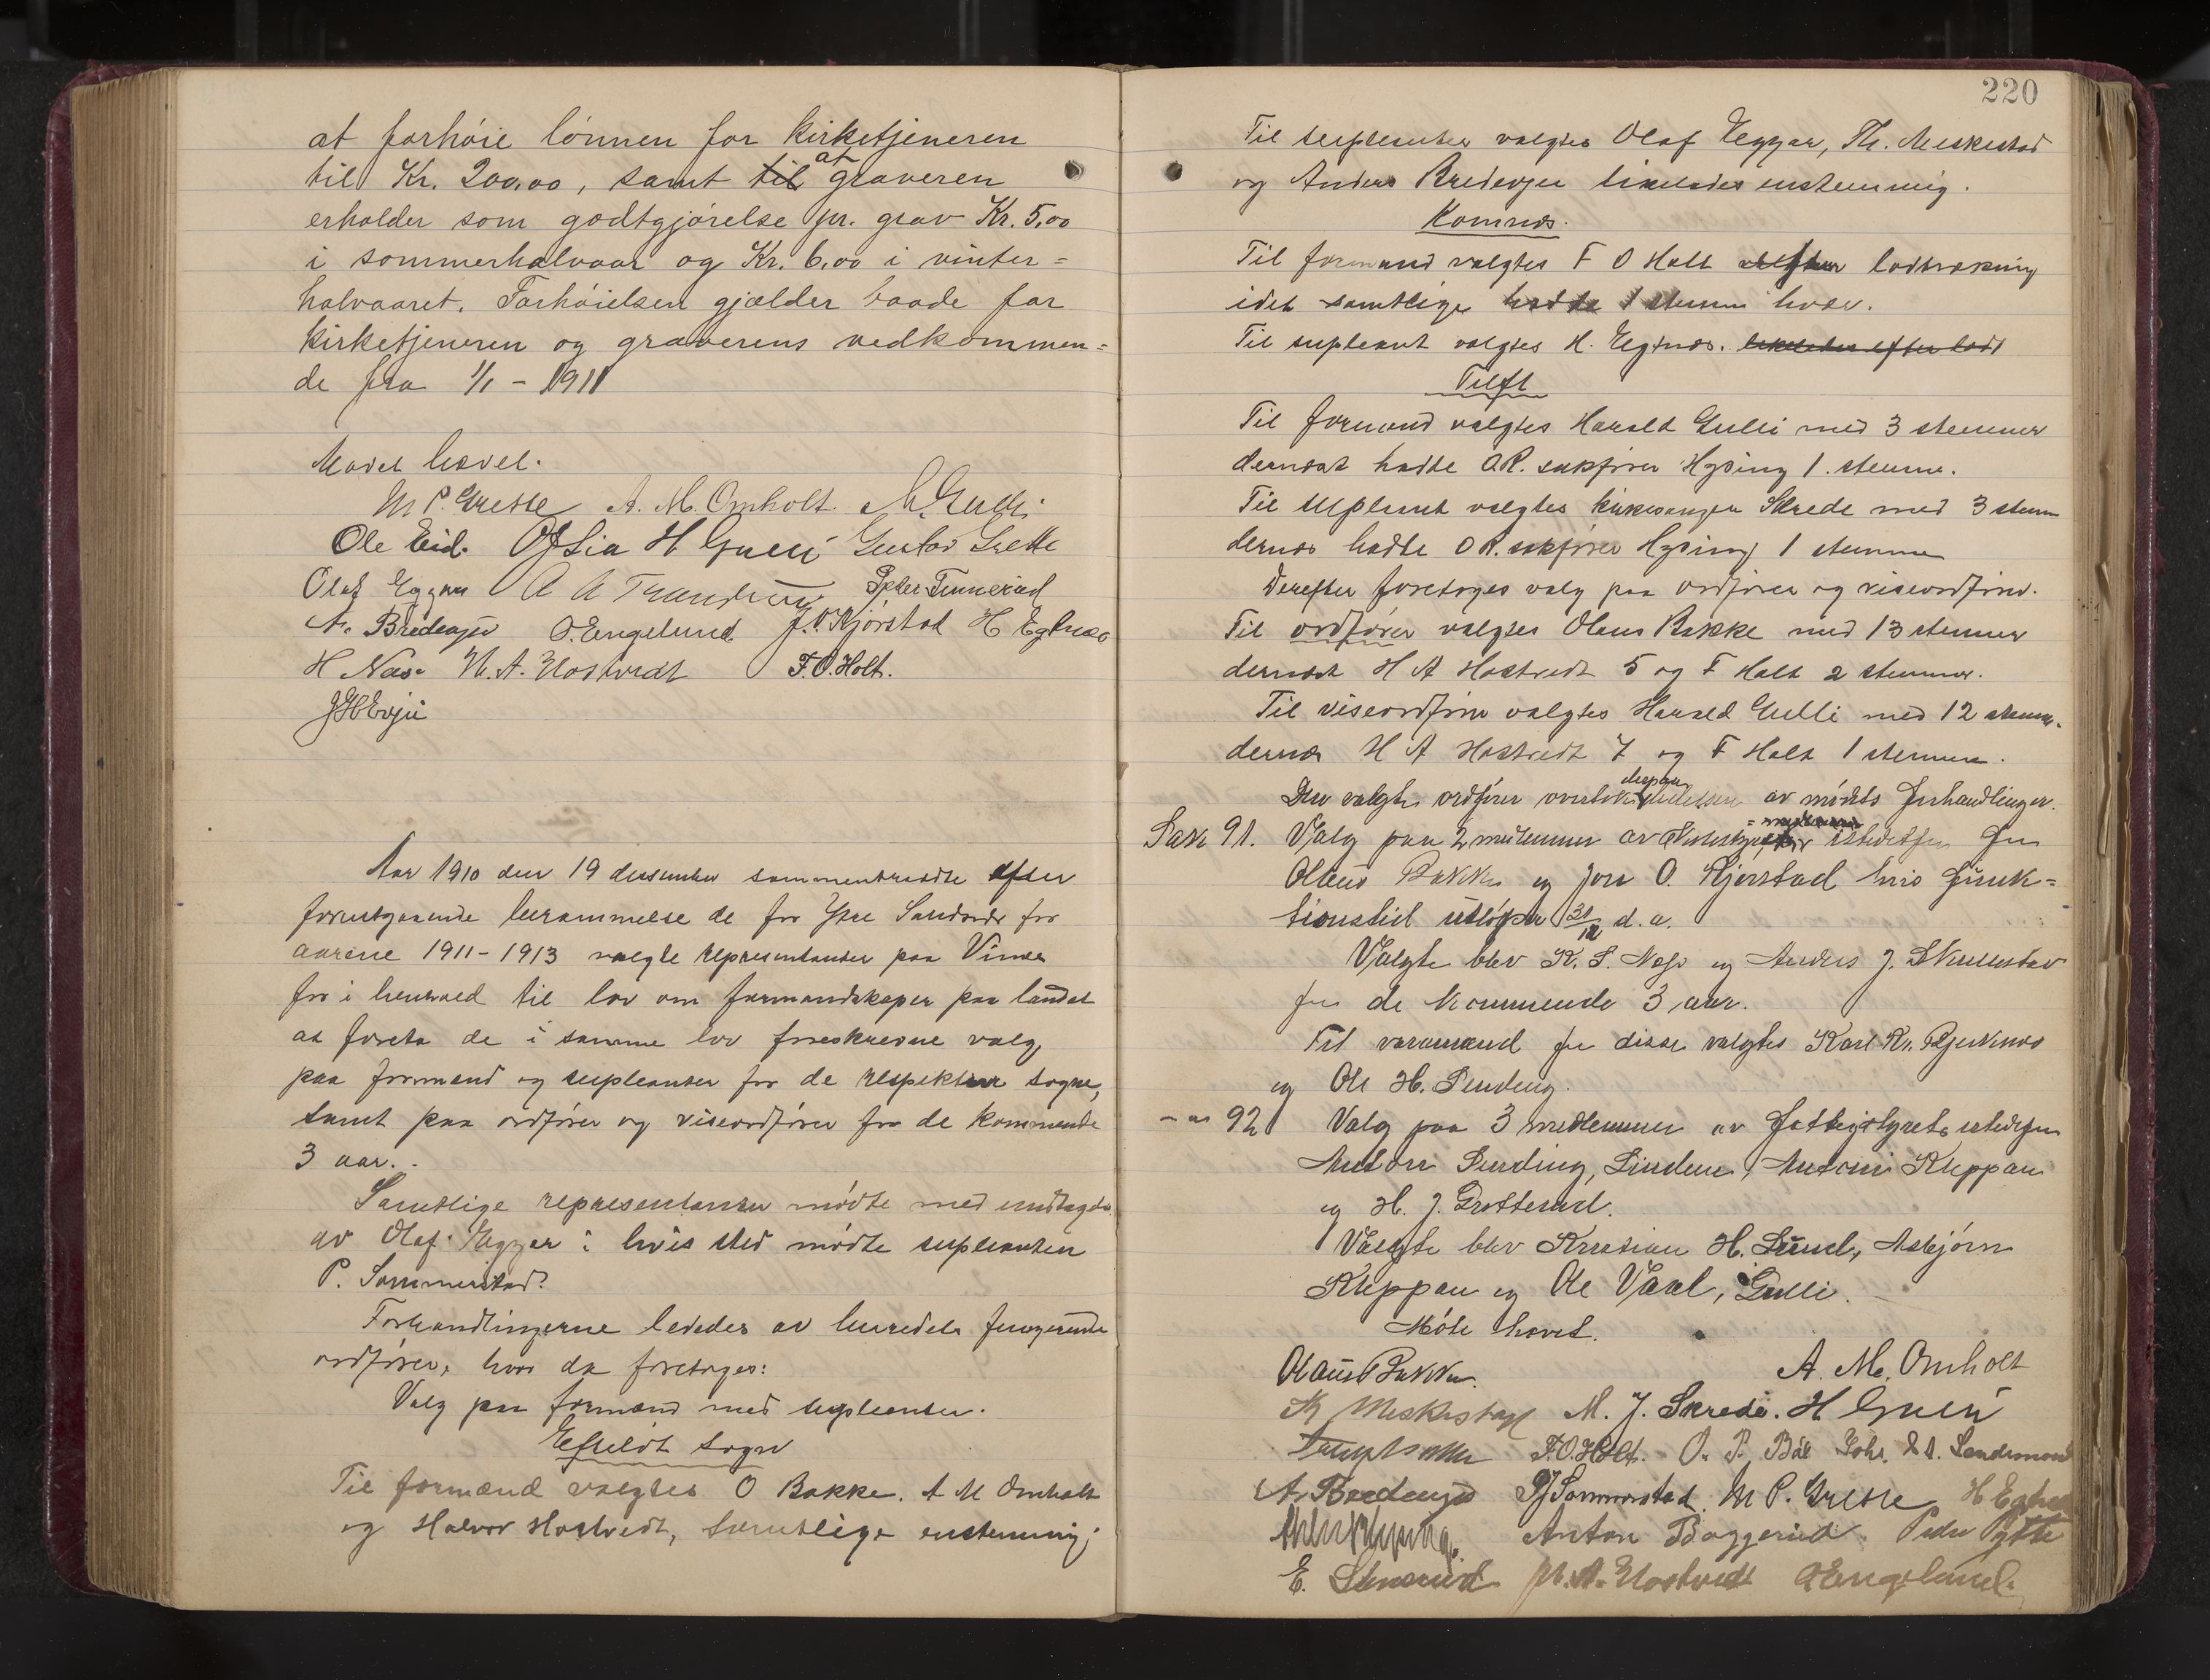 at forhöie lönnen for kirketjeneren
til Kr. 200,00, samt til at graveren
erholder som godtgjörelse pr. grav Kr. 5,00
i sommerhalvaar og Kr. 6,00 i vinter=
halvaaret. Forhöielsen gjælder baade for
kirketjeneren og graverens vedkommen=
de fra 1/1 - 1911
Mödet hævet.
M P. Grette A. M. Omholt. M. Gulli
Ole Eid. O J Lia H Gulli Gustav Grette
Olaf Eggar A A Trandrum Peder Tinnerud
A. Bredevjen O. Engelund J. O. Kjörstad H Egtnæs
H Næs. H. A. Hostvedt F. O. Holt.
J H Evju
Aar 1910 den 19 dessember sammentraadte efter
forutgaaende berammelse de for Ytre Sandsvær for
aarene 1911-1913 valgte representanter paa Vinæs
for i henhold til lov om formandskaper paa landet
at foreta de i samme lov foreskrevne valg
paa formænd og supleanter for de respektive sogne,
samt paa ordförer og viseordförer for de kommende
3 aar.
Samtlige representanter mödte med undtagelse
av Olaf Eggar i hvis sted mödte supleanten
P. Sommerstad.
Forhandlingerne lededes av herredets fungerende
ordförer, hvor da foretoges:
Valg paa formænd med supleanter.
Efteløt sogn
Til formænd valgtes O Bakke, A M Omholt
og Halvor Hostvedt, samtlige enstemmig;
220
Til supleanter valgtes Olaf Eggar, Th. Meskestad
og Anders Bredevjen likeledes enstemmig.
Komnæs.
Til formand valgtes F O Holt efter lodtrækning
idet samtlige hadde 1 stemme hver.
Til supleant valgtes H. Egtnæs. likeledes efter lodt
Tuft
Til formand valgtes Harald Gulli med 3 stemmer
dernæst hadde O.R. sakförer Hysing 1. stemme.
Til supleant valgtes kirkesanger Skrede med 3 stem
dernæs hadde O R. sakförer Hysing 1 stemme
Derefter foretoges valg paa ordförer og viseordförer.
Til ordförer valgtes Olaus Bakke med 13 stemmer
dernæst H A Hostvedt 5 og F Holt 2 stemmer.
Til viseordförer valgtes Harald Gulli med 12 stemm.
dernæs H A Hostvedt 7 og F Holt 1 stemme.
Den valgte ordförer overtok derpaa ledelsen av mödets forhandlinger.
Sak 91. Valg paa 2 medlemmer av istedetfor
Olaus Bakke og Jon O. Kjörstad hvis funk=
tionstid utlöper 31/12 d. a.
Valgte blev K. S. Næss og Anders J.
for de kommende 3 aar.
Til varamænd for disse valgtes Karl Kr. Bjerknæs
og Ole H. Sending.
-"- 92 Valg paa 3 medlemmer av fattigstyret istedetfor
Anton Sending, Lindum, Antoni Kleppan
og H. J. Grotterud.
Valgte blev Kristian H. Lund, Asbjörn
Kleppan og Ole Vaal, Gulli.
Möte hævet.
Olaus Bakke. A. M. Omholt
Th Meskestad M. J. Skrede. H Gulli
F. O. Holt. O. P. Böe Johs. Sandsmond
A. Bredevjen P J Sommerstad. M P. Grette H Egtnæs
Anton Baggerud Peder Pytte
E. Stenerud H. A. Hostvedt O Engelund.